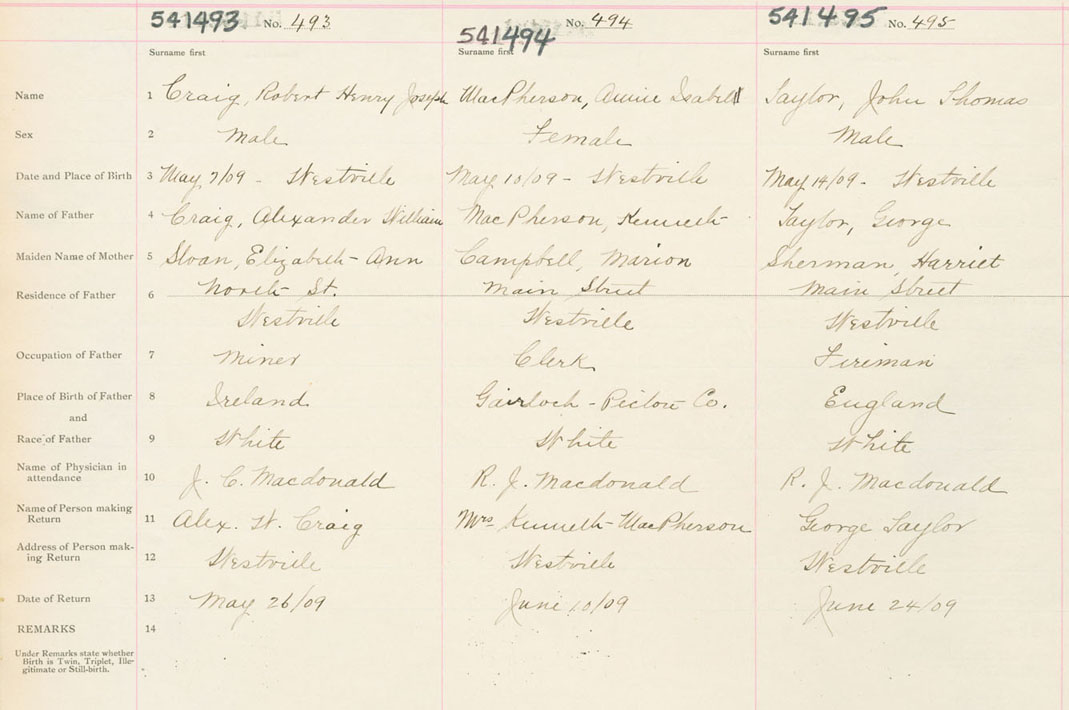 541493 No. 493 541494 No. 494 541495 No. 495
Surname first Surname first Surname first
Name 1 Craig, Robert Henry Joseph MacPherson, Annie Isabell Taylor, John Thomas
Sex 2 Male Female Male
Date and Place of Birth 3 May 7/09 - Westville May 10/09 - Westville May 14/09 - Westville
Name of Father 4 Craig, Alexander William MacPherson, Kenneth Taylor, George
Maiden Name of Mother 5 Sloan, Elizabeth Ann Campbell, Marion Sherman, Harriet
Residence of Father 6 North St. Main Street Main Street
Westville Westville Westville
Occupation of Father 7 Miner Clerk Fireman
Place of Birth of Father 8 Ireland Gairloch - Pictou Co. England
and
Race of Father 9 White White White
Name of Physician in
attendance 10 J. C. Macdonald R. J. Macdonald R. J. Macdonald
Name of Person making
Return 11 Alex. W. Craig Mrs Kenneth MacPherson George Taylor
Address of Person mak-
ing Return 12 Westville Westville Westville
Date of Return 13 May 26/09 June 10/09 June 24/09
REMARKS 14
Under Remarks state whether
Birth is Twin, Triplet, Ille-
gitimate or Still-birth.